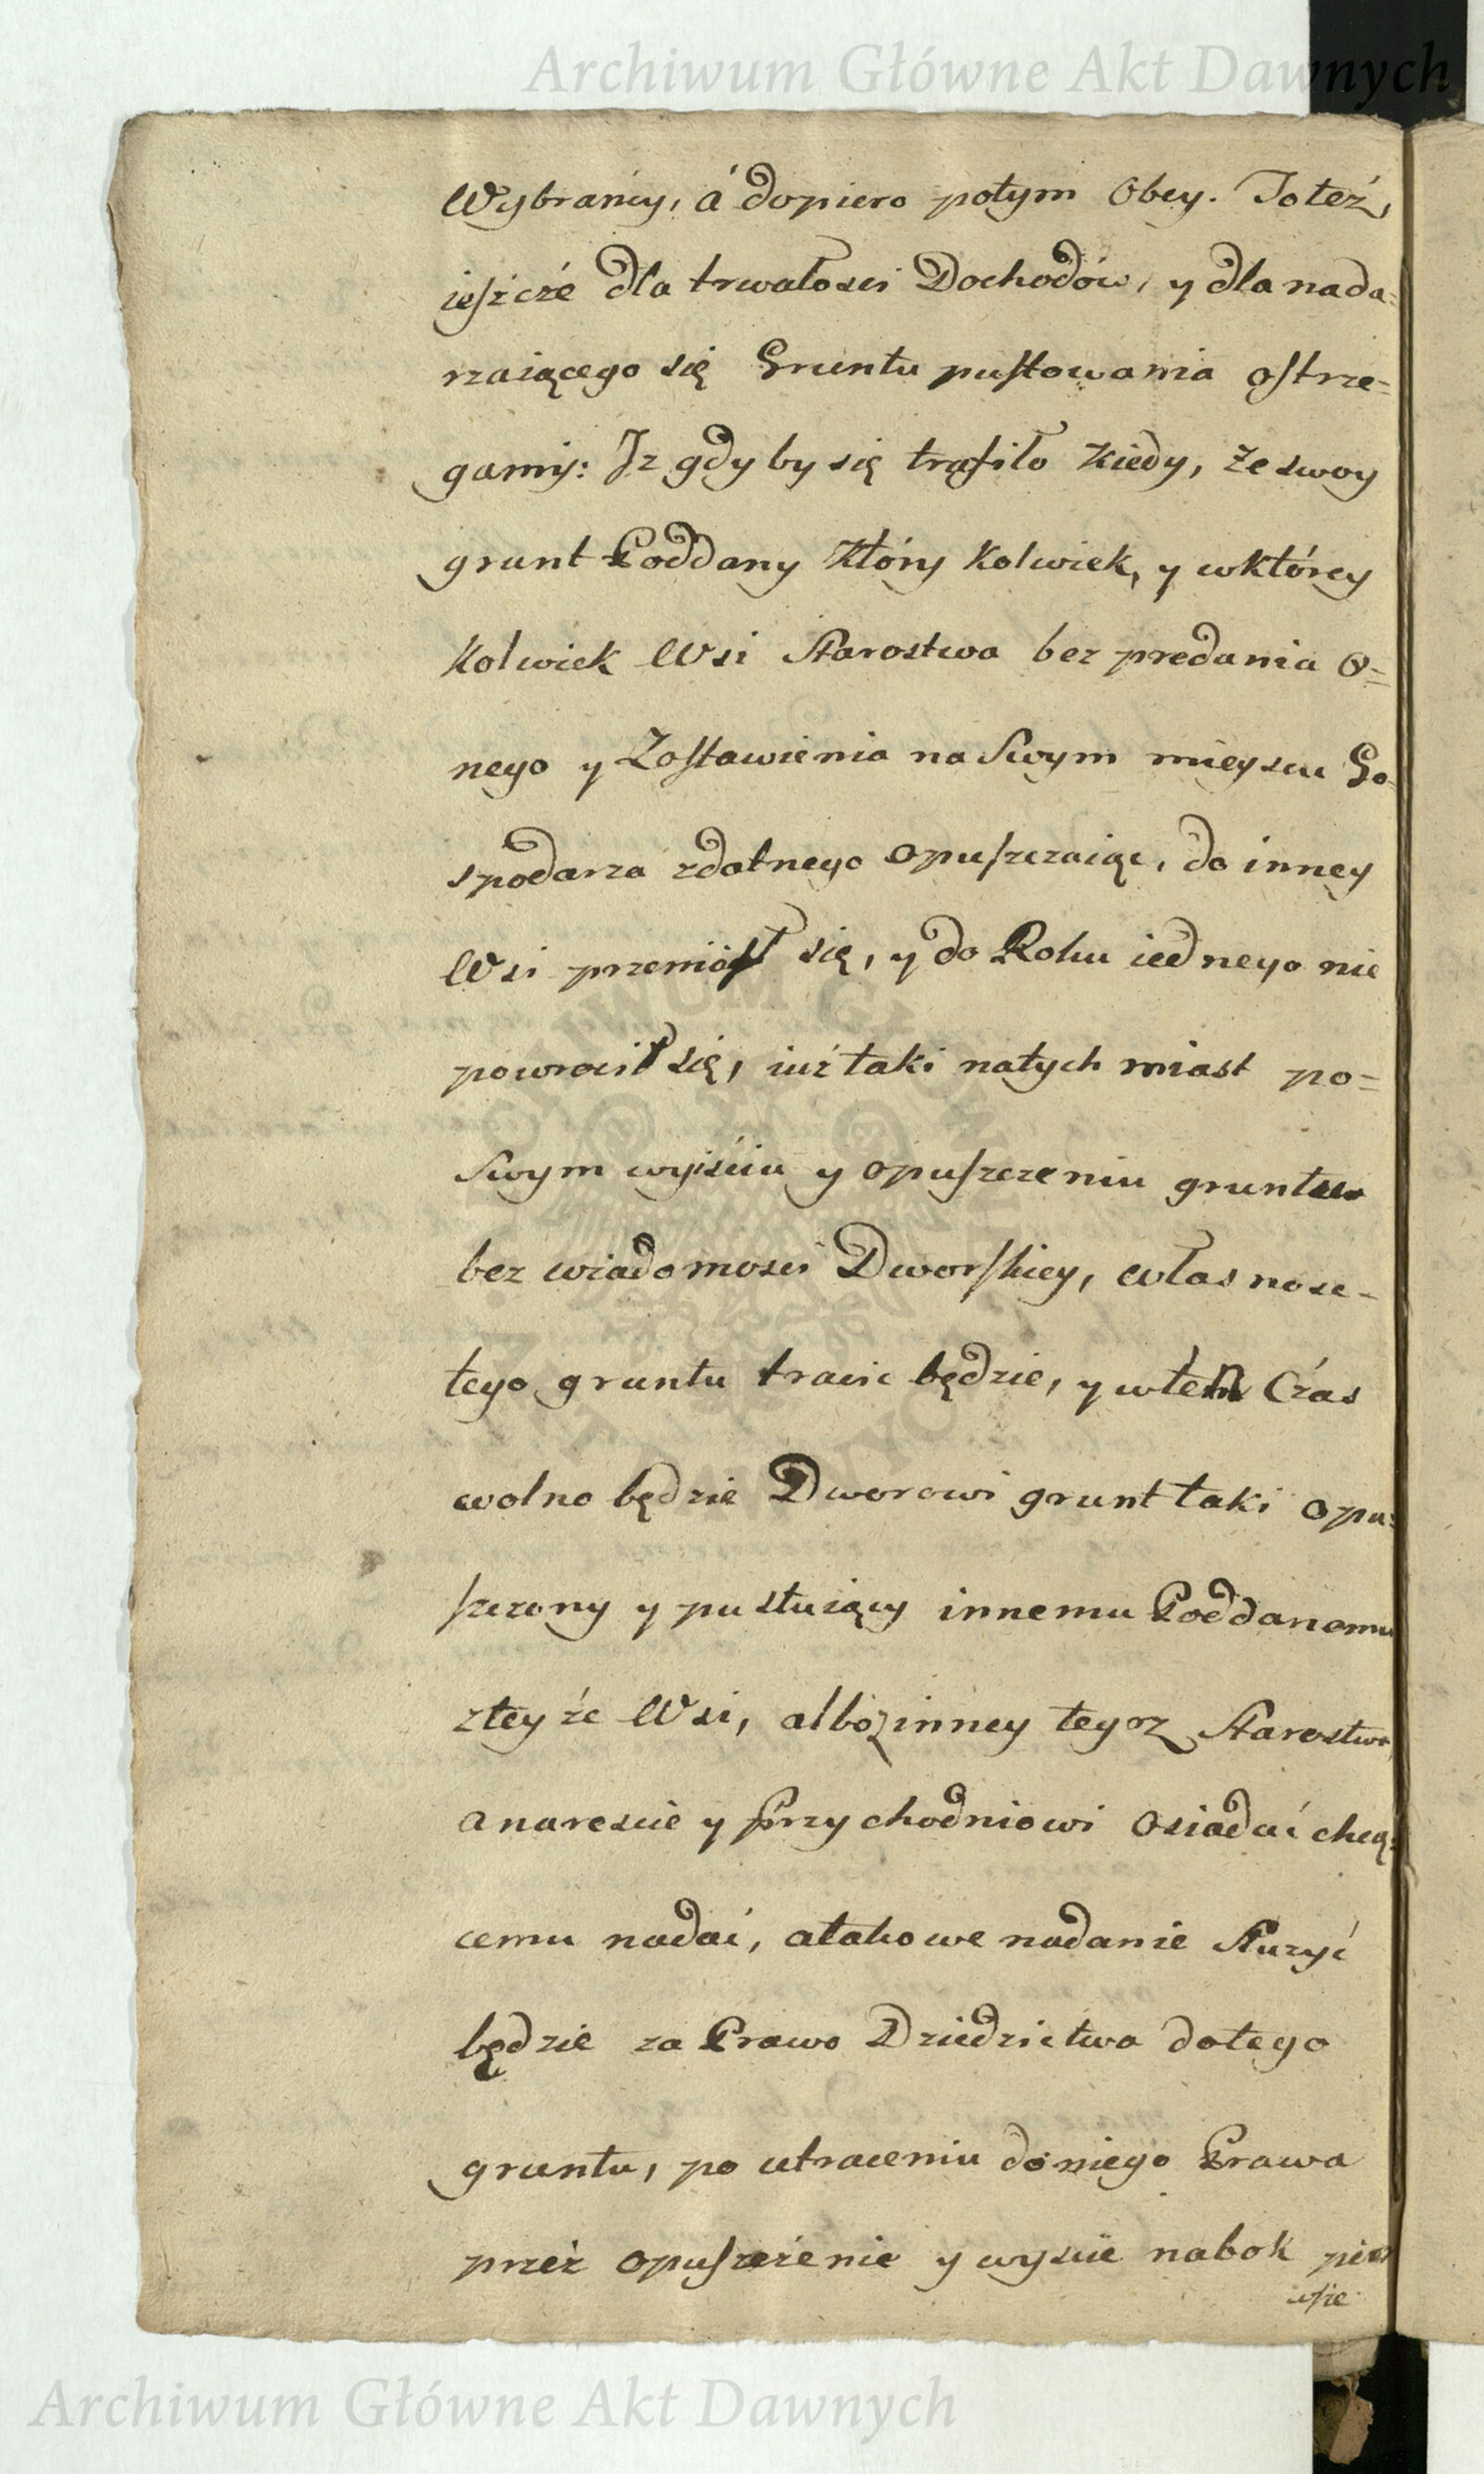 Archiwum Główne Akt Dawnych
Wybrańcy, á dopiero potym Obcy. To też,
ieszcże dla trwałosci Dochodów, y dla nada=
rzaiącego się Gruntu pustowania ostrze=
gamy: Iz gdyby się trafiło kiedy, że swoy
grunt Poddany który kolwiek, y wktórey
kolwiek Wsi Starostwa bez predania O=
nego y Zostawienia na Swym mieyscu Go=
spodarza zdatnego opuszczaiąc, do inney
Wsi przeniósł się, y do Roku iednego nie
powrocił się, iuż taki natych miast po=
Swym wyiściu y opuszczeniu gruntu
bez wiadomosci Dworskiey, własnosc=
tego gruntu tracic będzie, y wten Czas
wolno będzie Dworowi grunt taki opu=
szczony y pustuiący innemu Poddanemu
zteyże Wsi, albo z inney tegoz Starostwa
anarescie y Przychodniowi osiadać chcą=
cemu nadać, atakowe nadanie Służyć
będzie za Prawo Dziedzictwa dotego
gruntu, po utraceniu doniego Prawa
przeż opuszczenie y wyscie nabok pier
wsze
Archiwum Główne Akt Dawnych